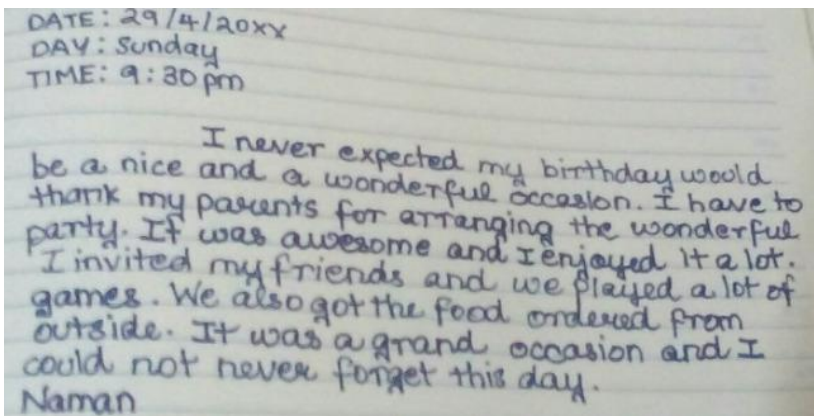 DATE: 29/4/20xx
DAY: Sunday
TIME: 9:30 pm
I never expected my birthday would
be a nice and a wonderful occasion. I have to
thank my parents for arranging the wonderful
party. It was awesome and I enjoyed it a lot.
I invited my friends and we played a lot of
games. We also got the food ordered from
outside. It was a grand occasion and I
could not never forget this day.
Naman